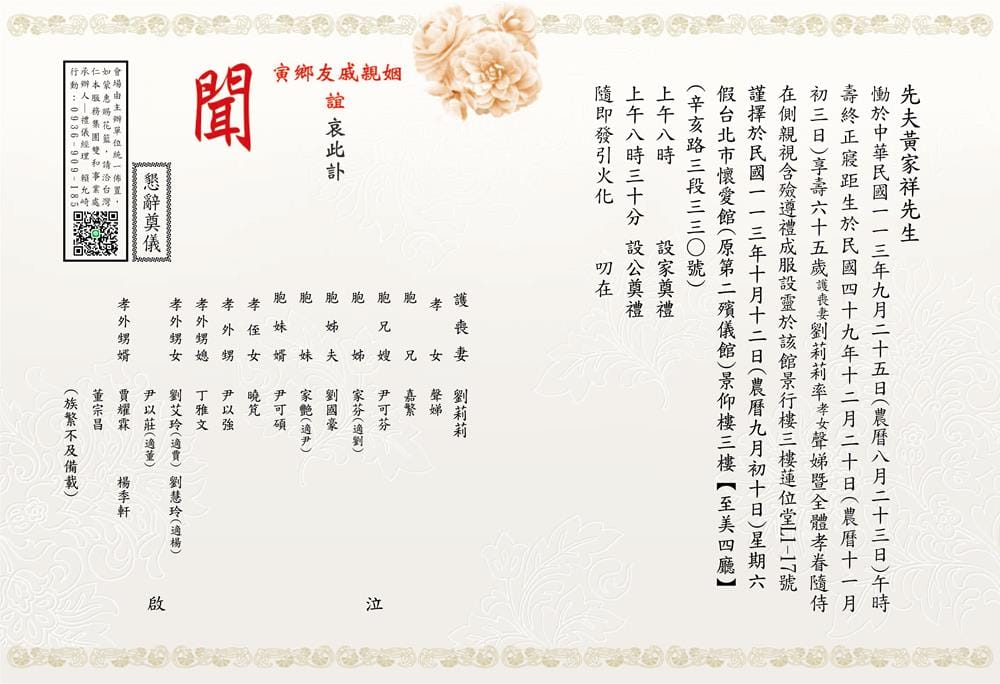 先夫黃家祥先生
慟於中華民國一一三年九月二十五日(農曆八月二十三日)午時
壽終正寢距生於民國四十九年十二月二十日(農曆十一月
初三日)享壽六十五歲護喪妻劉莉莉率孝女聲娣暨全體孝眷隨侍
在側親視含殮遵禮成服設靈於該館景行樓三樓蓮位堂L1-17號
謹擇於民國一一三年十月十二日(農曆九月初十日)星期六
假台北市懷愛館(原第二殯儀館)景仰樓三樓【至美四廳】
(辛亥路三段三三〇號)
上午八時 設家奠禮
上午八時三十分 設公奠禮
隨即發引火化 叨在
姻親戚友鄉寅
誼
哀此訃
聞
護喪妻 劉莉莉
孝女 聲娣
胞兄 嘉繁
胞兄嫂 尹可芬
胞姊 家芬(適劉)
胞姊夫 劉國豪
胞妹 家艷(適尹)
胞妹婿 尹可碩
孝侄女 曉芃
孝外甥 尹以強
孝外甥媳 丁雅文
孝外甥女 劉艾玲(適賈) 劉慧玲(適楊)
尹以莊(適董)
孝外甥婿 賈耀霖 楊季軒
董宗昌
(族繁不及備載)
泣
啟
懇辭奠儀
會場由主辦單位統一佈置，
如蒙惠賜花籃，請洽台灣
仁本服務集團雙和事業處
承辦人—禮儀經理 賴允崎
行動：0936-909-185